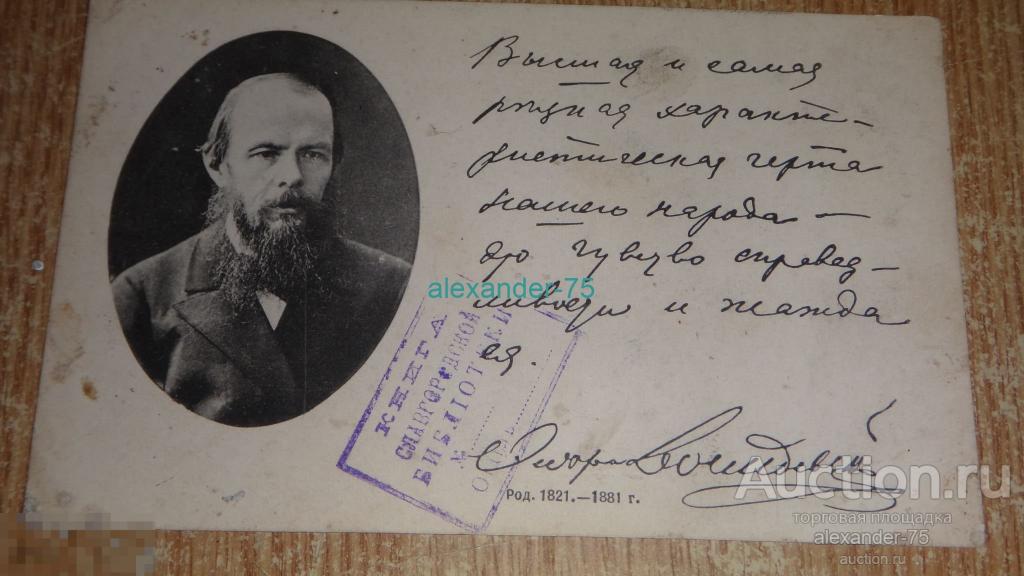 Высшая и самая
резкая характе-
ристическая черта
нашего народа —
это чувство справед-
ливости и жажда
ея.
Федор Достоевский
Род. 1821.—1881 г.
КНИГА
СЛАВГОРОДСКОЙ
БИБЛІОТЕКИ
№
alexander-75
Auction.ru
торговая площадка
alexander-75
auction.ru